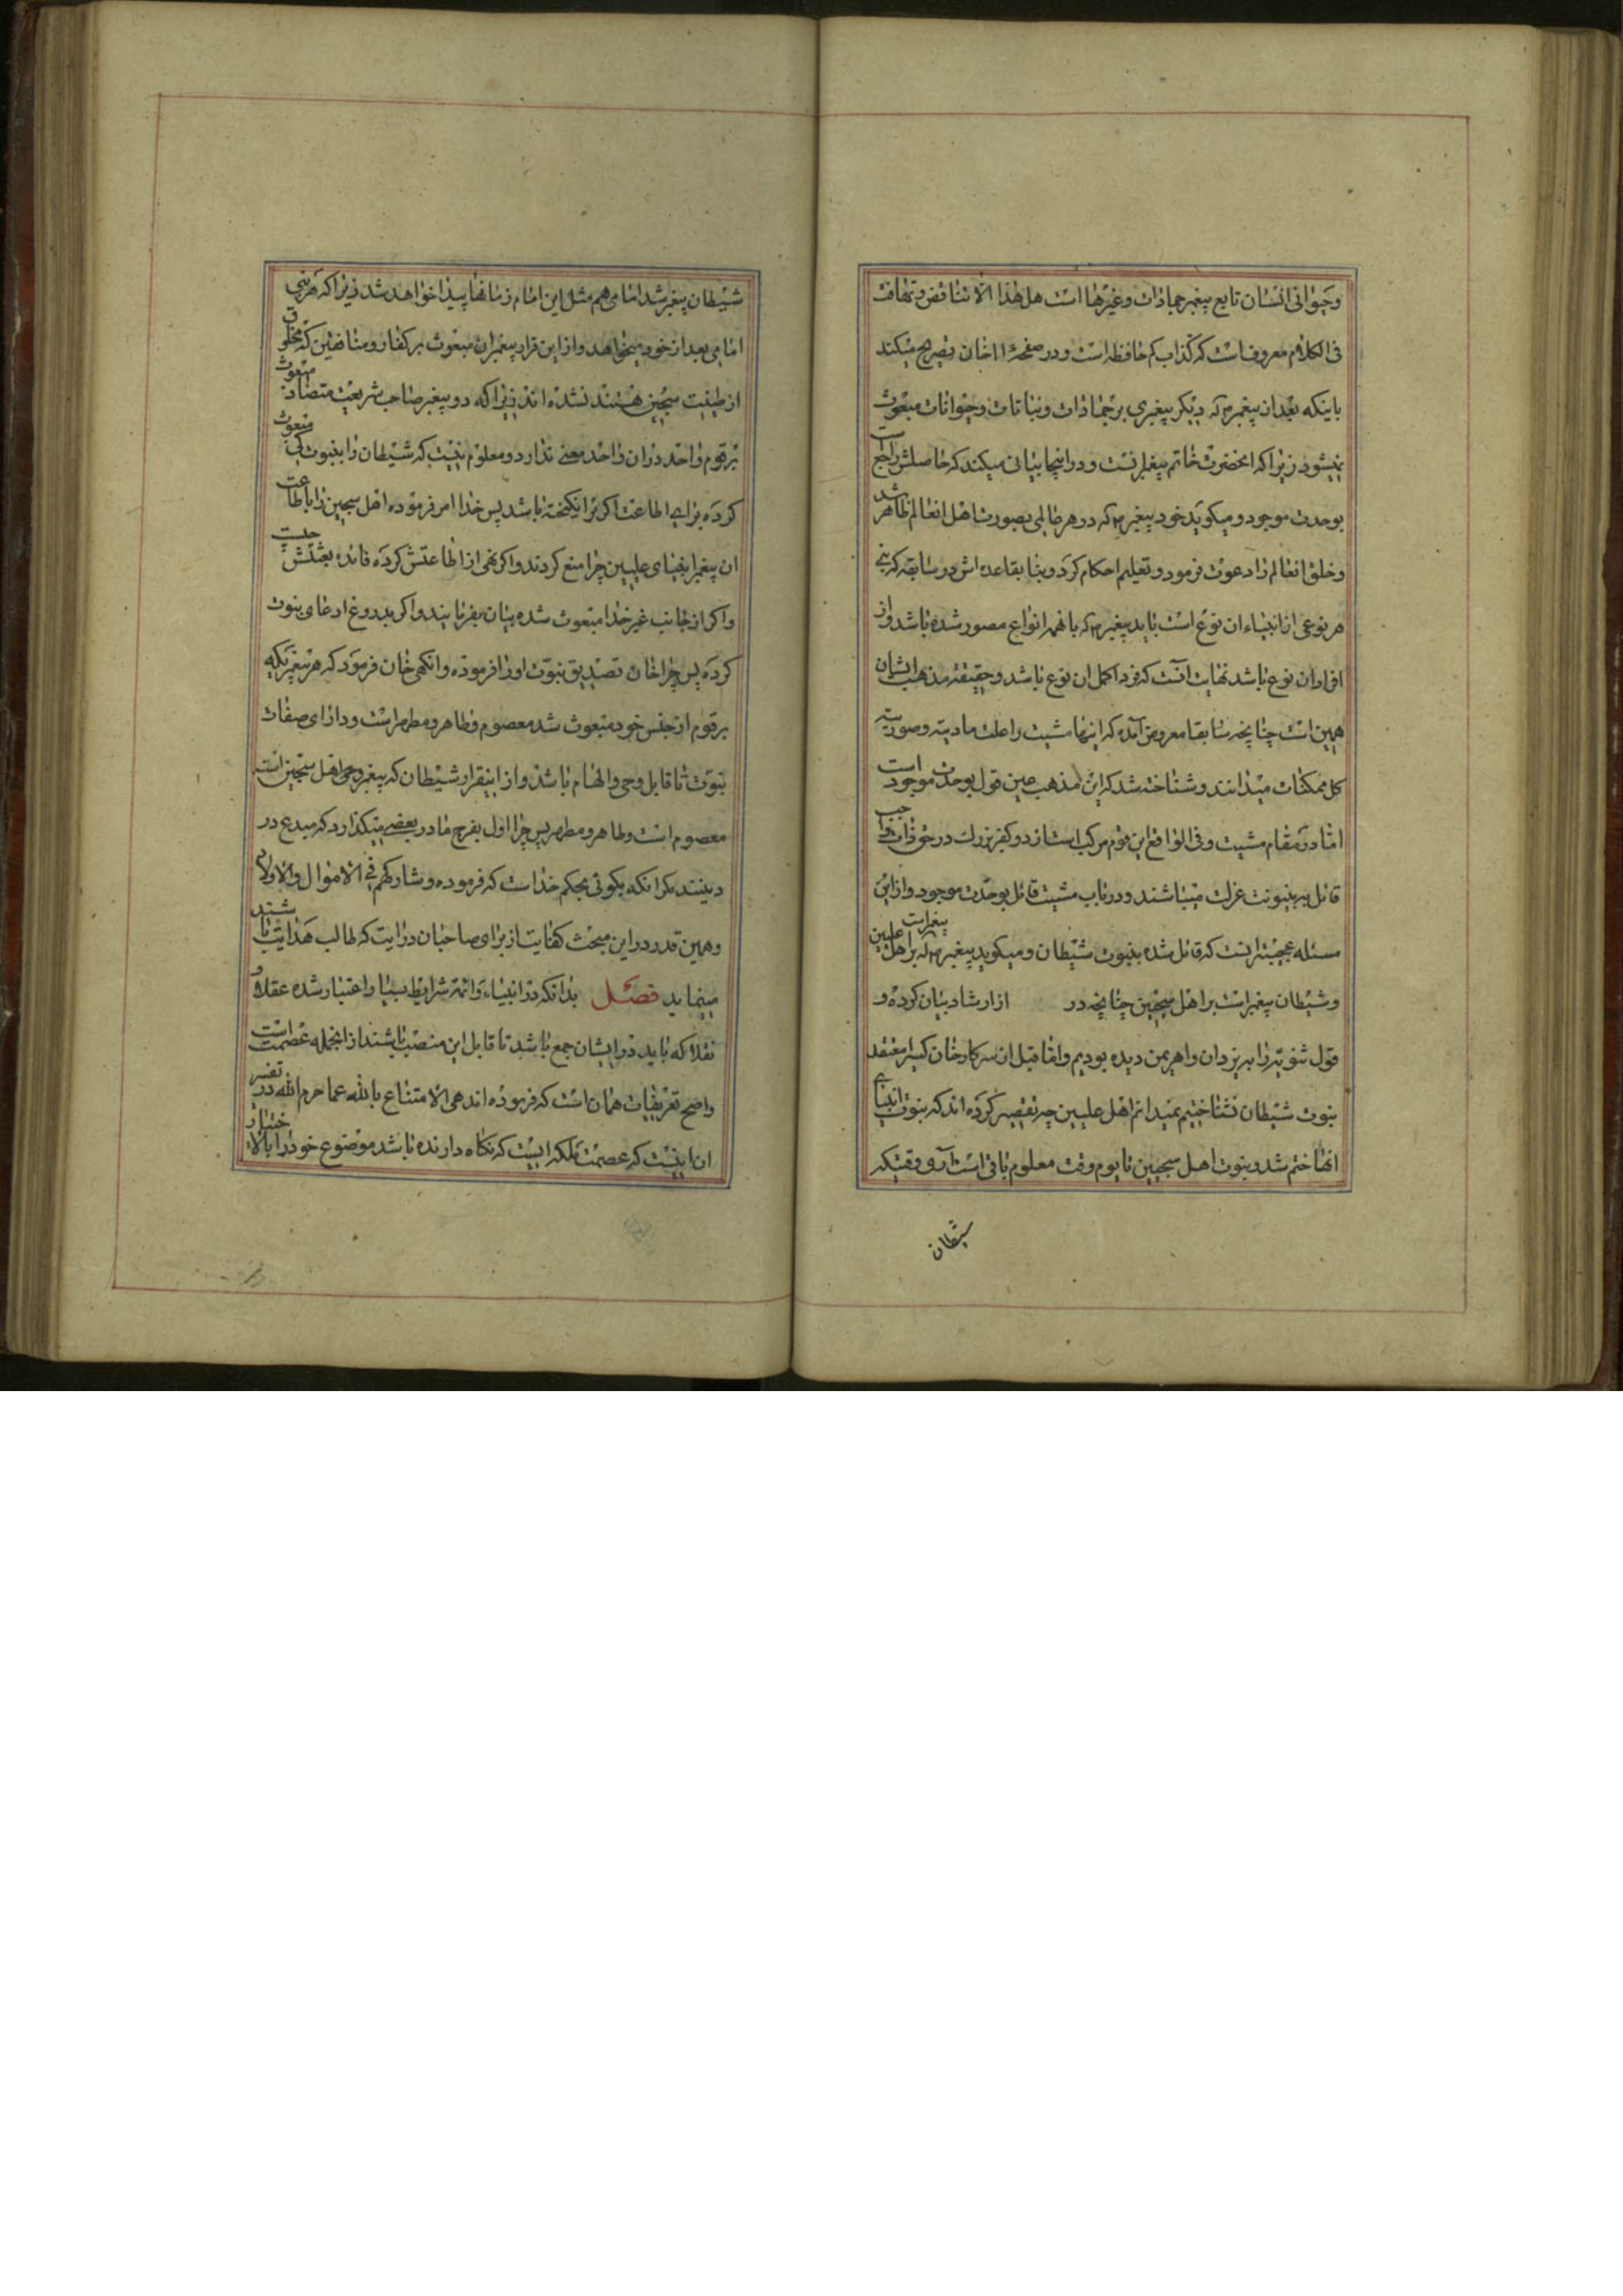 وحیوانی انسان تابع پیغمبر جمادات وغیرها است هل هذا الا تناقض وتهافت
فی الکلام معروفست که کذاب کم حافظه است ودر صفحهٔ ۱۱ خان تصریح میکند
باینکه بعد از پیغمبر ص که دیگر پیغمبری بر جمادات ونباتات وحیوانات مبعوث
نمیشود زیرا که انحضرت خاتم پیغمبرانست ودر اینجا بیانی میکند که حاصلش راجع است
بوحدت موجود ومیکوید خود پیغمبر ص که در هر عالمی بصورت اهل انعالم ظاهر شد
وخلق انعالم را دعوت فرمود وتعلیم احکام کرد وبنا بقاعده اش در سابقه که نبی
هر نوعی از انبیاء ان نوع است باید پیغمبر ص که بانهمه انواع مصور شده باشد واز
افراد ان نوع باشد نهایت انست که فرد اکمل ان نوع باشد وحقیقة مذهب ایشان
همین است چنانچه سابقا معروض آمده که اینها مشیت را علت مادیته وصوریته
کل ممکنات میدانند وشناخته شد که این مذهب عین قول بوحدت موجود است
اما در مقام مشیت وفی الواقع این قوم مرکب است از دو کفر بزرك در حق ذات واجب
قائل ببینونت عزلت میباشند ودر باب مشیت قائل بوحدت موجود واز این
مسئله عجیبتر انست که قائل شده بنبوت شیطان ومیکوید پیغمبر ص که بر اهل علیین پیغمبر است
وشیطان پیغمبر است بر اهل سجین چنانچه در از ارشاد بیان کرده و
قول ثنویه را بیزدان واهریمن دیده بودیم واما قبل از سرکار خان کسیرا معتقد
بنبوت شیطان نشناختیم نمیدانم اهل علیین چه تقصیر کرده اند که نبوت انبیای
انها ختم شد ونبوت اهل سجین تا یوم وقت معلوم باقی است آری وقتیکه
شیطان
شیطان پیغمبر شد امامی هم مثل این امام زمانها پیدا خواهد شد زیرا که هر نبی
امامی بعد از خود میخواهد واز این قرار پیغمبران مبعوث بر کفار ومنافقین که مخلوق
از طینت سجین هستند نشده اند زیرا که دو پیغمبر صاحب شریعت متضاد مبعوث
بر قوم واحد در ان واحد معنی ندارد ومعلوم نیست که شیطان را بنبوت کی مبعوث
کرده برای اطاعت اکر برانکیخته باشد پس خدا امر فرموده اهل سجین را باطاعت
ان پیغمبر انبیای علیین چرا منع کردند واکر نهی از اطاعتش کرده فائده بعثتش چیست
واکر از جانب غیر خدا مبعوث شده بیان بفرمایند واکر بدروغ ادعای نبوت
کرده پس چرا خان تصدیق نبوت اورا فرموده وانکهی خان فرمود که هر پیغمبریکه
بر قوم از جنس خود مبعوث شد معصوم وطاهر ومطهر است ودارای صفات
نبوت تا قابل وحی والهام باشد واز اینقرار شیطان که پیغمبر وحی اهل سجین است
معصوم است وطاهر ومطهر پس چرا اول بفرج مادر بعضی میکذارد که مبدع در
دینند مکر انکه بکوئی بحکم خداست که فرموده وشارکهم فی الاموال والاولاد
وهمین قدر در این مبحث کفایت از برای صاحبان درایت که طالب هدایت باشند
مینماید فصل بدانکه در انبیاء وائمه شرایط بسیار اعتبار شده عقلا و
نقلا که باید در ایشان جمع باشد تا قابل این منصب باشند از انجمله عصمت است
واصح تعریفات همان است که فرموده اند هی الامتناع بالله عما حرم الله در تفسیر
ان اینست که عصمت ملکه ایست که نکاه دارنده باشد موضوع خود را بالاختیار